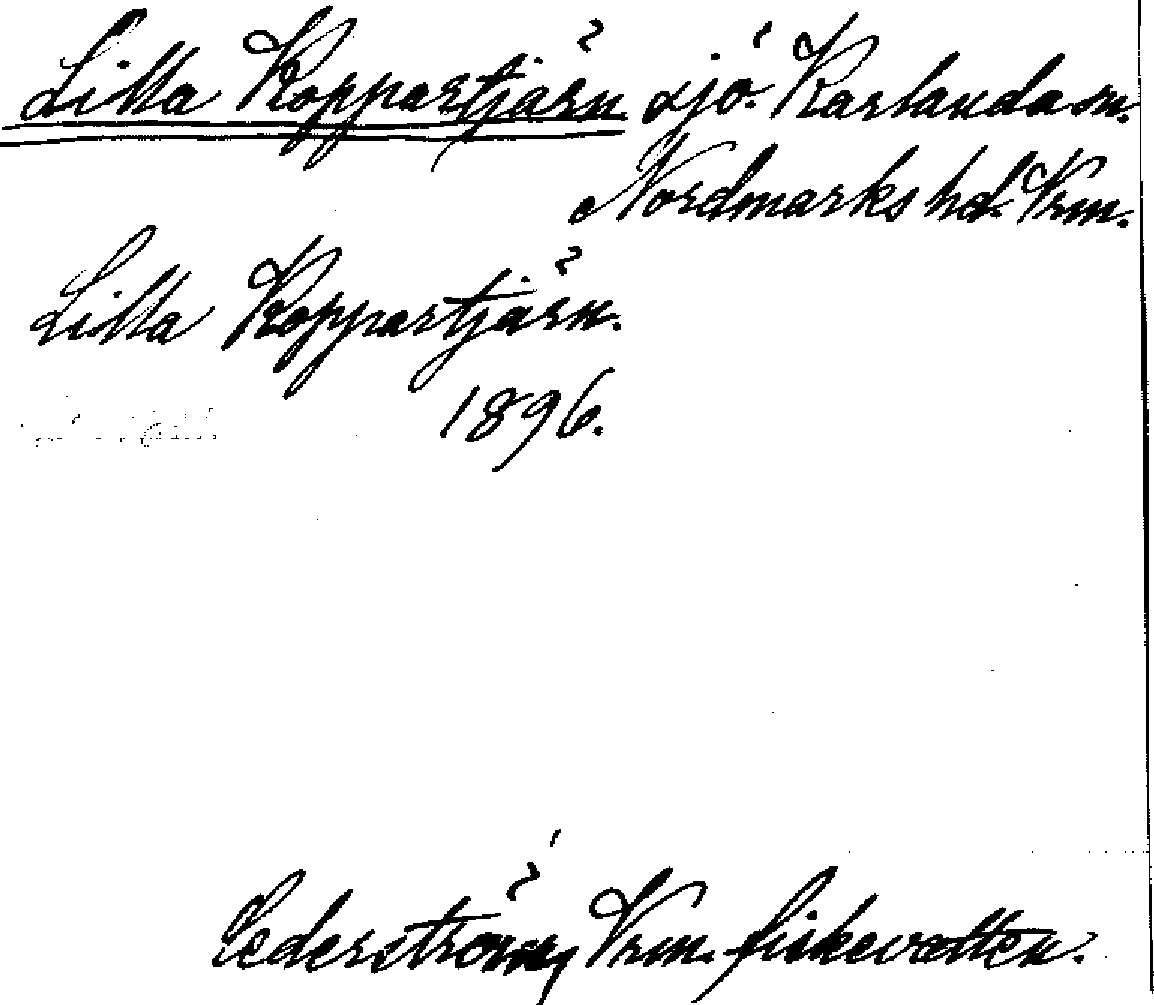 Lilla Koppartjärn sjö. Karlanda sn.
Nordmarks hd. Vrm.
Lilla Koppartjärn.
1896.
Cederström, Vrm. fiskevatten.